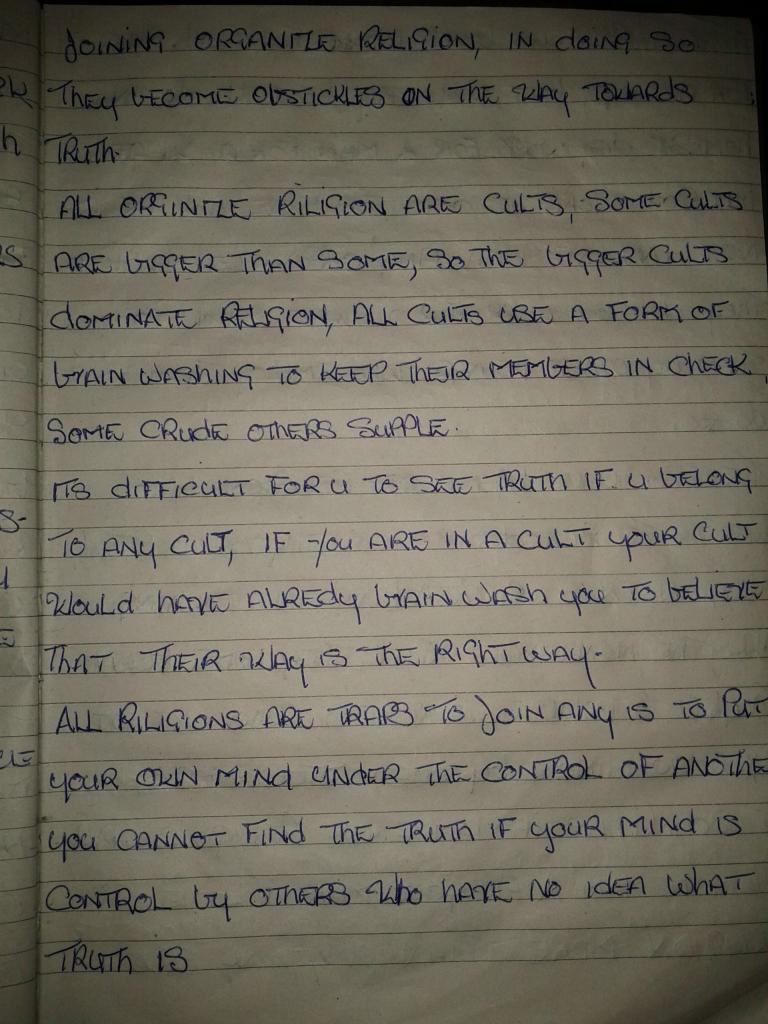 JOINING ORGANIZE RELIGION, IN doing So
THEY BECOME OBSTICKLES ON THE WAY TOWARDS
TRUTH.
ALL ORGINIZE RILIGION ARE CULTS, SOME CULTS
ARE BIGGER THAN SOME, SO THE BIGGER CULTS
DOMINATE RELIGION, ALL CULTS USE A FORM OF
BRAIN WASHING TO KEEP THEIR MEMBERS IN CHECK,
SOME CRUDE OTHERS SUPPLE.
ITS DIFFICULT FOR U TO SEE TRUTH IF U BELONG
TO ANY CULT, IF YOU ARE IN A CULT YOUR CULT
WOULD HAVE ALREDY BRAIN WASH YOU TO BELIEVE
THAT THEIR WAY IS THE RIGHT WAY.
ALL RILIGIONS ARE TRAPS TO JOIN ANY IS TO PUT
YOUR OWN MIND UNDER THE CONTROL OF ANOTHE
YOU CANNOT FIND THE TRUTH IF YOUR MIND IS
CONTROL BY OTHERS WHO HAVE NO IDEA WHAT
TRUTH IS